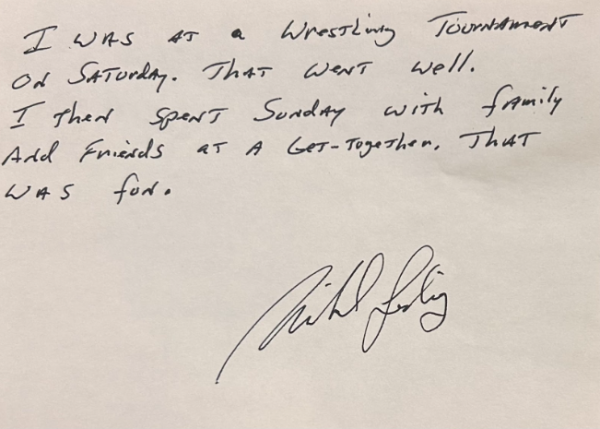 I was at a Wrestling Tournament
on Saturday. That went well.
I then spent Sunday with family
and Friends at a Get-Together. That
was fun.